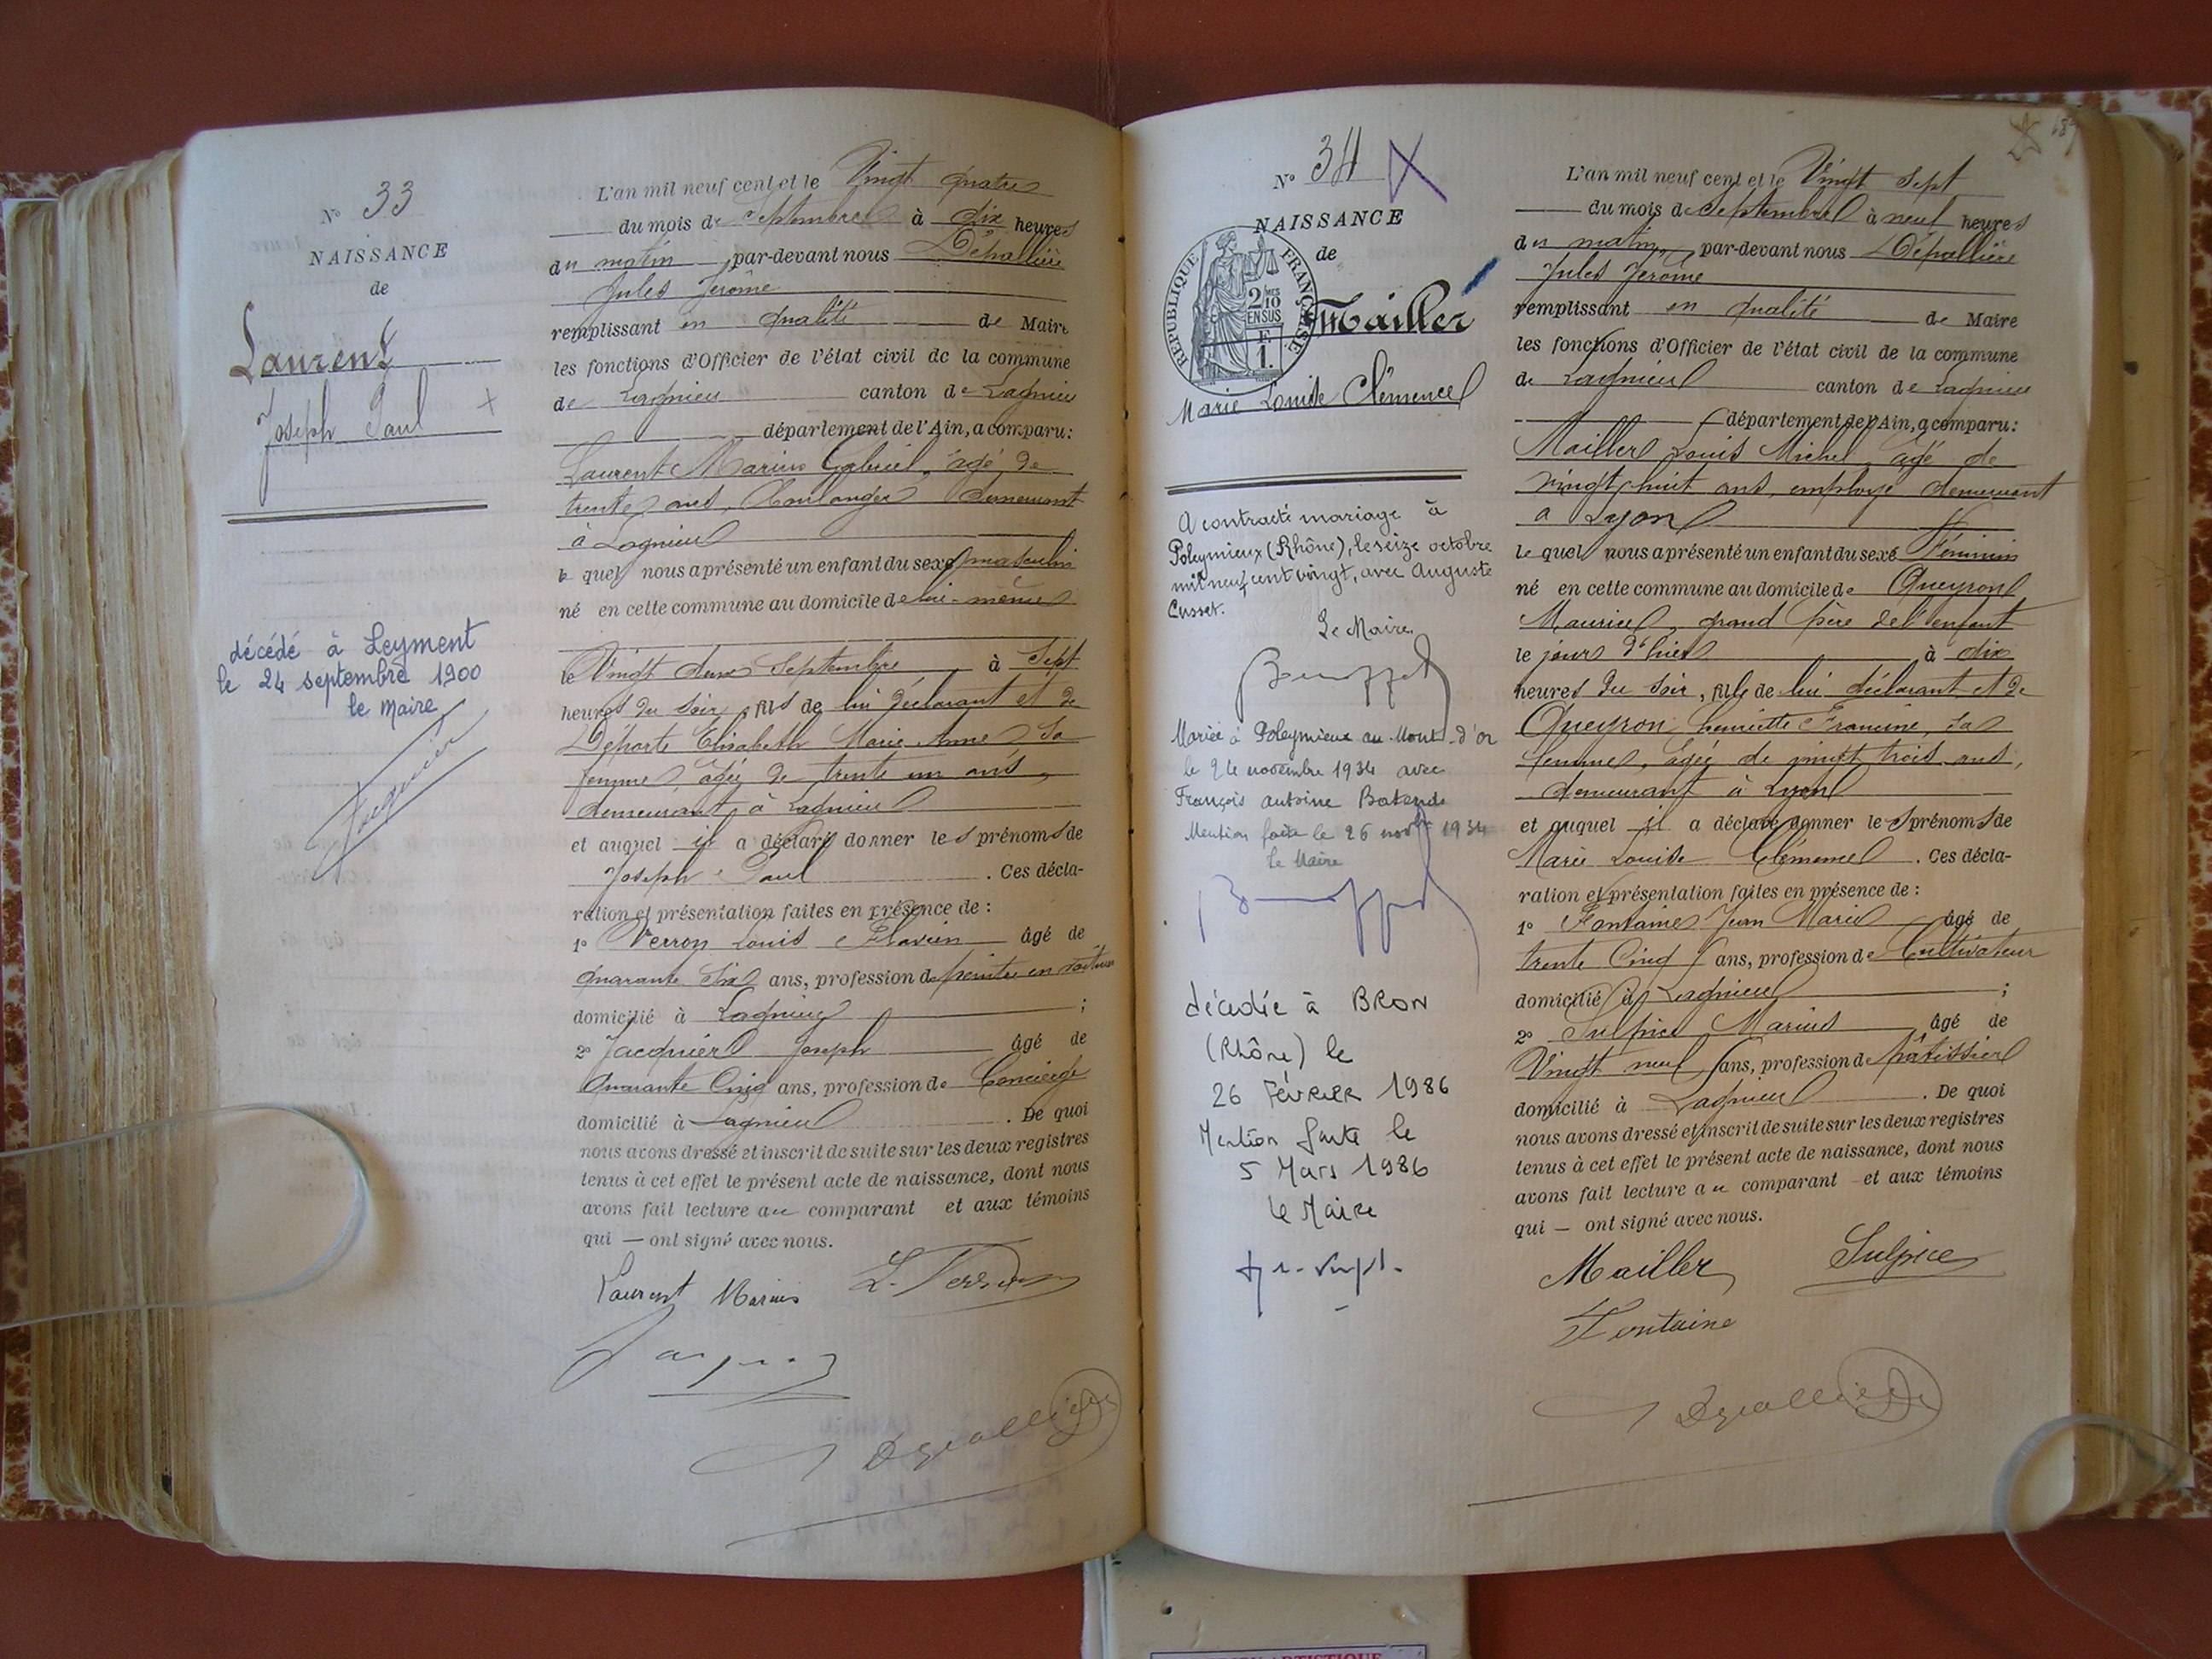 N° 33
NAISSANCE
de
Laurent
Joseph Paul
décédé à Leyment
le 24 septembre 1900
le Maire
L'an mil neuf cent et le Vingt quatre
du mois de Septembre à dix heures
du matin par-devant nous Dépallière
Jules Jerôme
remplissant en qualité de Maire
les fonctions d'Officier de l'état civil de la commune
de Lagnieu canton de Lagnieu
département de l'Ain, a comparu:
Laurent Marius Gabriel, âgé de
trente ans, Boulanger demeurant
à Lagnieu
le quel nous a présenté un enfant du sexe masculin
né en cette commune au domicile de lui-même
le Vingt deux Septembre à Sept
heures du soir, fils de lui déclarant et de
Déporte Elisabeth Marie Anne sa
femme, âgée de trente un ans,
demeurant à Lagnieu
et auquel il a déclaré donner les prénoms de
Joseph Paul . Ces décla-
ration et présentation faites en présence de :
1° Verron Louis Flavien âgé de
quarante six ans, profession de peintre en voitures
domicilié à Lagnieu ;
2° Jacquier Joseph âgé de
Quarante Cinq ans, profession de Concierge
domicilié à Lagnieu . De quoi
nous avons dressé et inscrit de suite sur les deux registres
tenus à cet effet le présent acte de naissance, dont nous
avons fait lecture au comparant et aux témoins
qui — ont signé avec nous.
Laurent Marius L. Verron
N° 34
NAISSANCE
de
REPUBLIQUE FRANÇAISE
2/10 EN SUS
1
Mailler
Marie Louise Clémence
A contracté mariage à
Poleymieux (Rhône), le seize octobre
mil neuf cent vingt, avec Auguste
Cusset.
Le Maire
Mariée à Poleymieux au Mont-d'or
le 24 novembre 1934 avec
François Antoine
Mention faite le 26 novbre 1934
Le Maire
décédée à BRON
(Rhône) le
26 FÉVRIER 1986
Mention faite le
5 Mars 1986
Le Maire
L'an mil neuf cent et le Vingt sept
du mois de Septembre à neuf heures
du matin, par-devant nous Dépallière
Jules Jerôme
remplissant en qualité de Maire
les fonctions d'Officier de l'état civil de la commune
de Lagnieu canton de Lagnieu
département de l'Ain, a comparu:
Mailler Louis Michel, âgé de
vingt huit ans, employé demeurant
à Lyon
le quel nous a présenté un enfant du sexe Féminin
né en cette commune au domicile de Queyron
Maurice, grand père de l'enfant
le jour d'hier à dix
heures du soir, fille de lui déclarant et de
Queyron Henriette Francine, sa
femme, âgée de vingt trois ans,
demeurant à Lyon
et auquel il a déclaré donner les prénoms de
Marie Louise Clémence . Ces décla-
ration et présentation faites en présence de :
1° Fontaine Jean Marie âgé de
trente Cinq ans, profession de Cultivateur
domicilié à Lagnieu ;
2° Sulpice Marius âgé de
Vingt neuf ans, profession de pâtissier
domicilié à Lagnieu . De quoi
nous avons dressé et inscrit de suite sur les deux registres
tenus à cet effet le présent acte de naissance, dont nous
avons fait lecture au comparant et aux témoins
qui — ont signé avec nous.
Mailler Sulpice
Fontaine